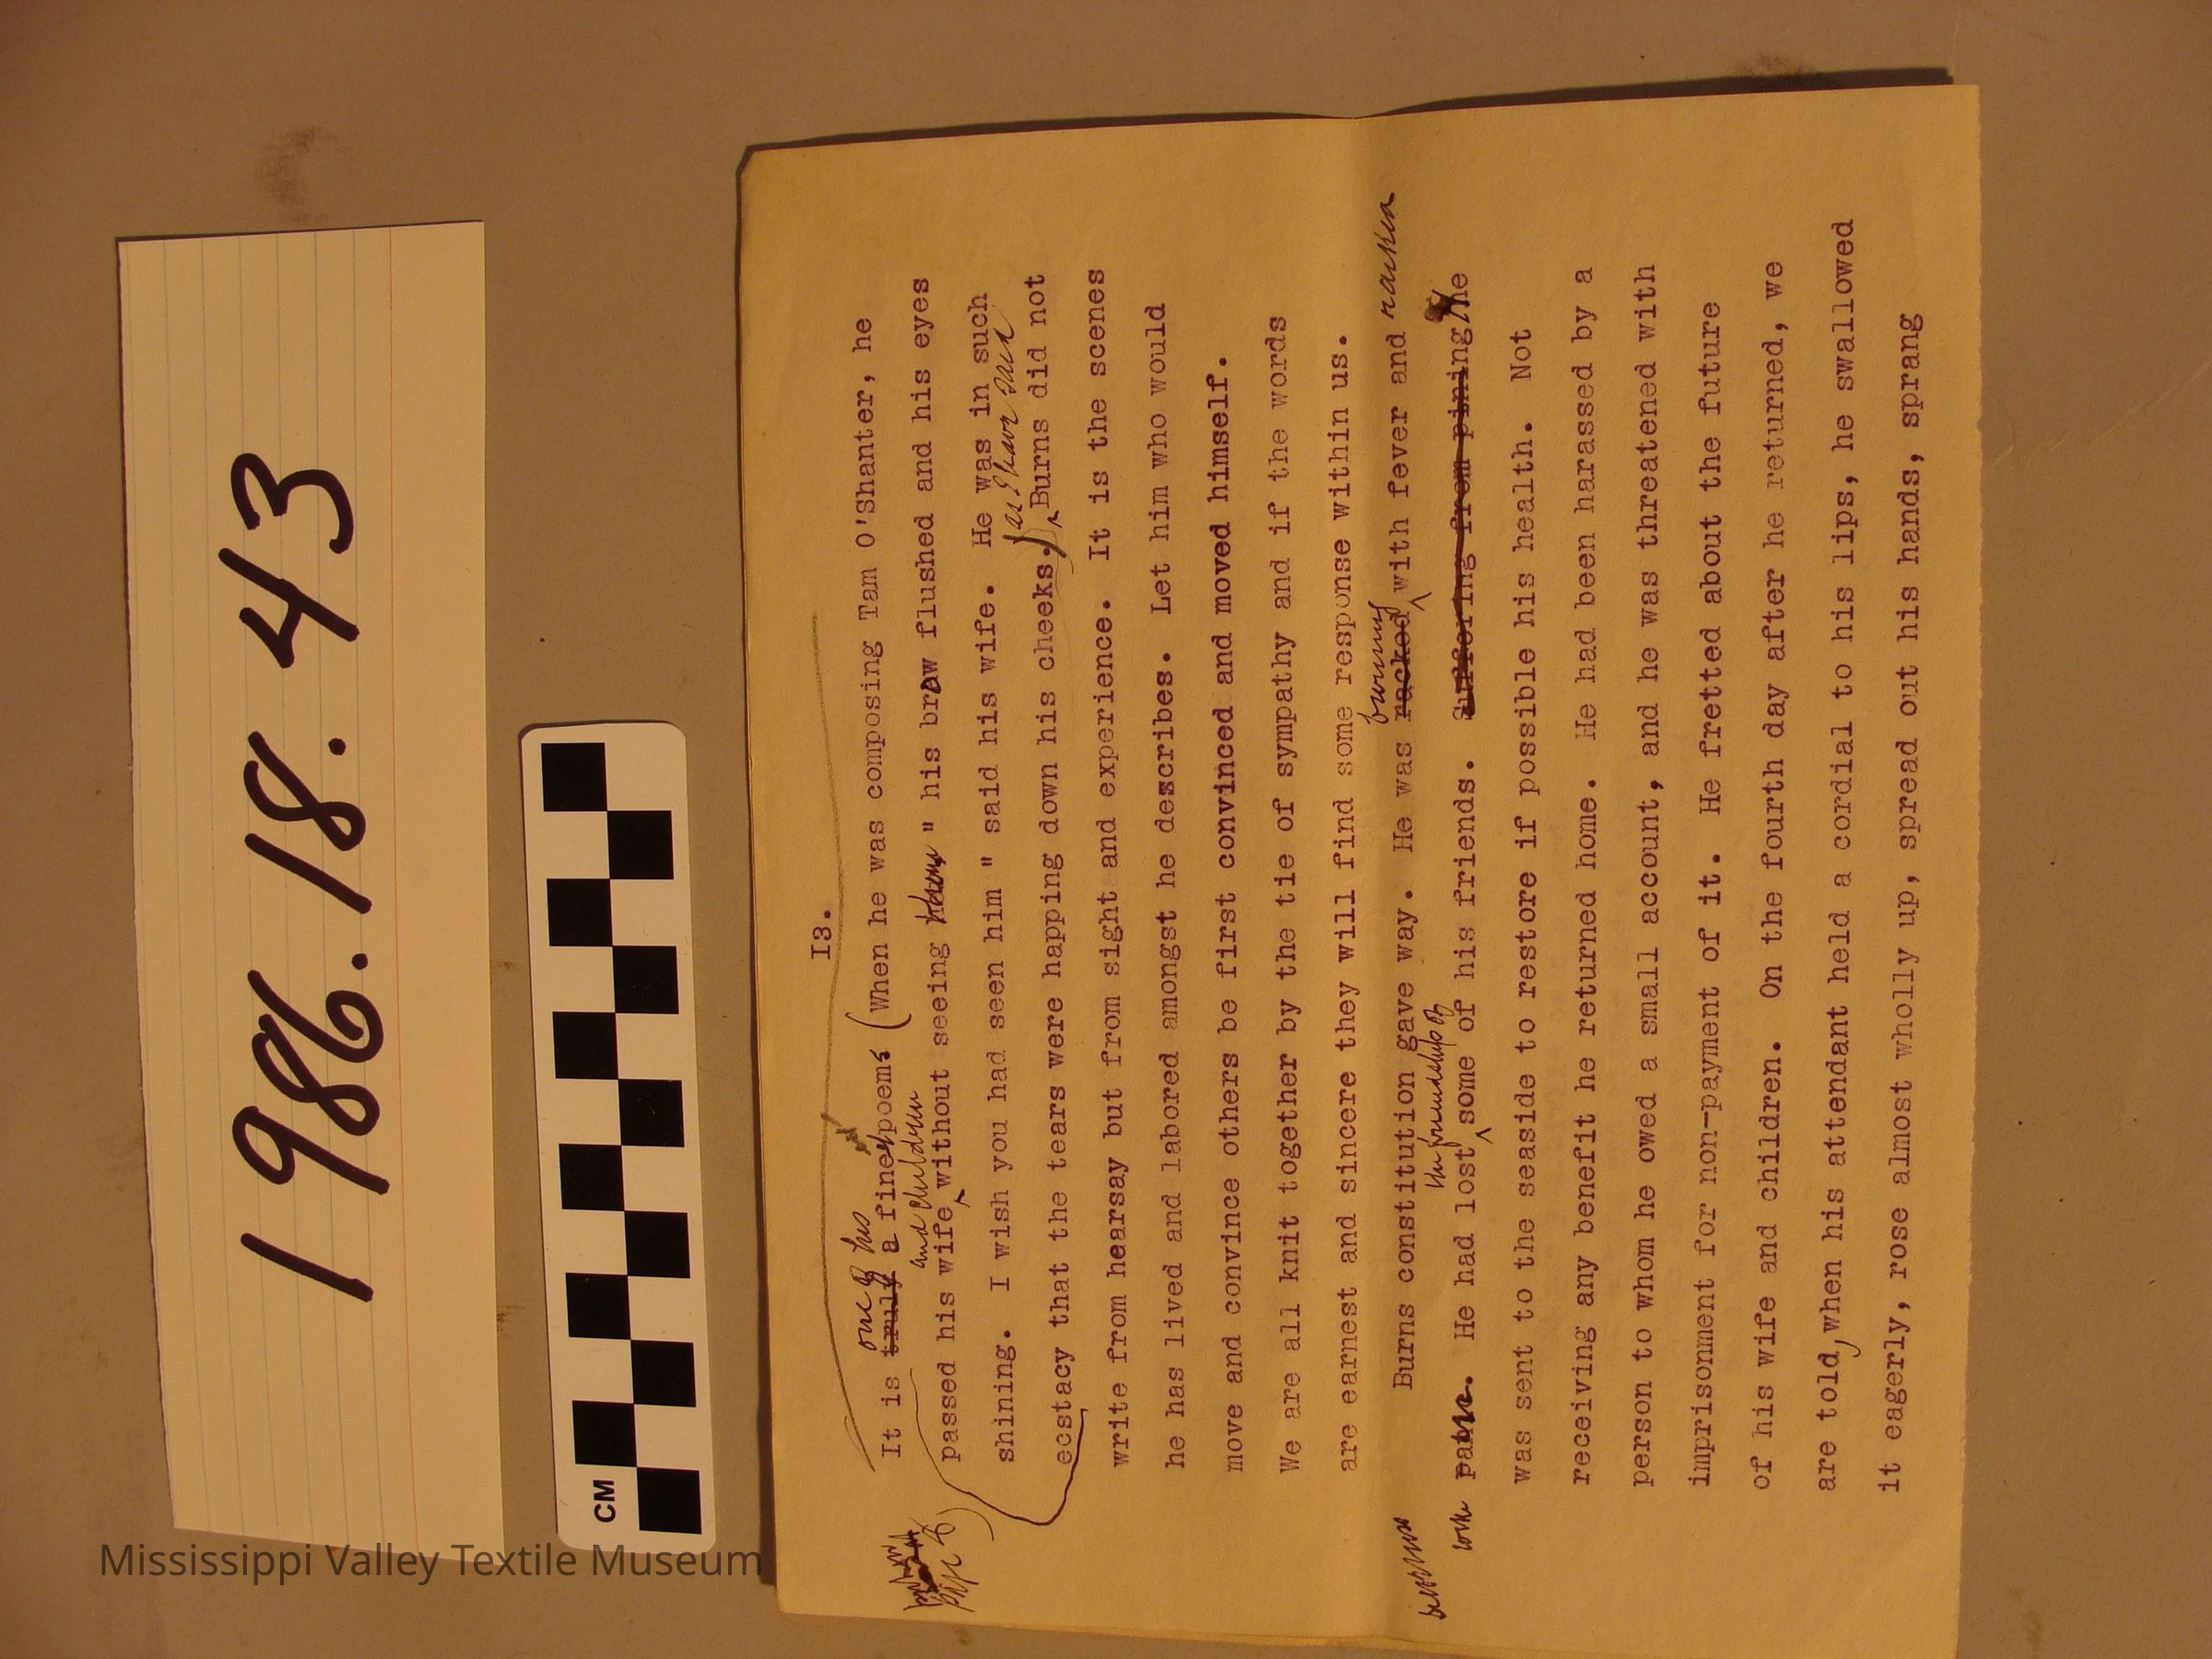 1986.18.43
CM
Mississippi Valley Textile Museum
I3.
one of his
It is truly a fine poems (When he was composing Tam O'Shanter, he
and children
passed his wife without seeing " his brow flushed and his eyes
shining. I wish you had seen him " said his wife. He was in such
as I have said
ecstacy that the tears were happing down his cheeks.) Burns did not
write from hearsay but from sight and experience. It is the scenes
he has lived and labored amongst he describes. Let him who would
move and convince others be first convinced and moved himself.
We are all knit together by the tie of sympathy and if the words
are earnest and sincere they will find some response within us.
burning
Burns constitution gave way. He was racked with fever and racked
the friendship of
with pain. He had lost some of his friends. Suffering from pining He
was sent to the seaside to restore if possible his health. Not
receiving any benefit he returned home. He had been harassed by a
person to whom he owed a small account, and he was threatened with
imprisonment for non-payment of it. He fretted about the future
of his wife and children. On the fourth day after he returned, we
are told, when his attendant held a cordial to his lips, he swallowed
it eagerly, rose almost wholly up, spread out his hands, sprang